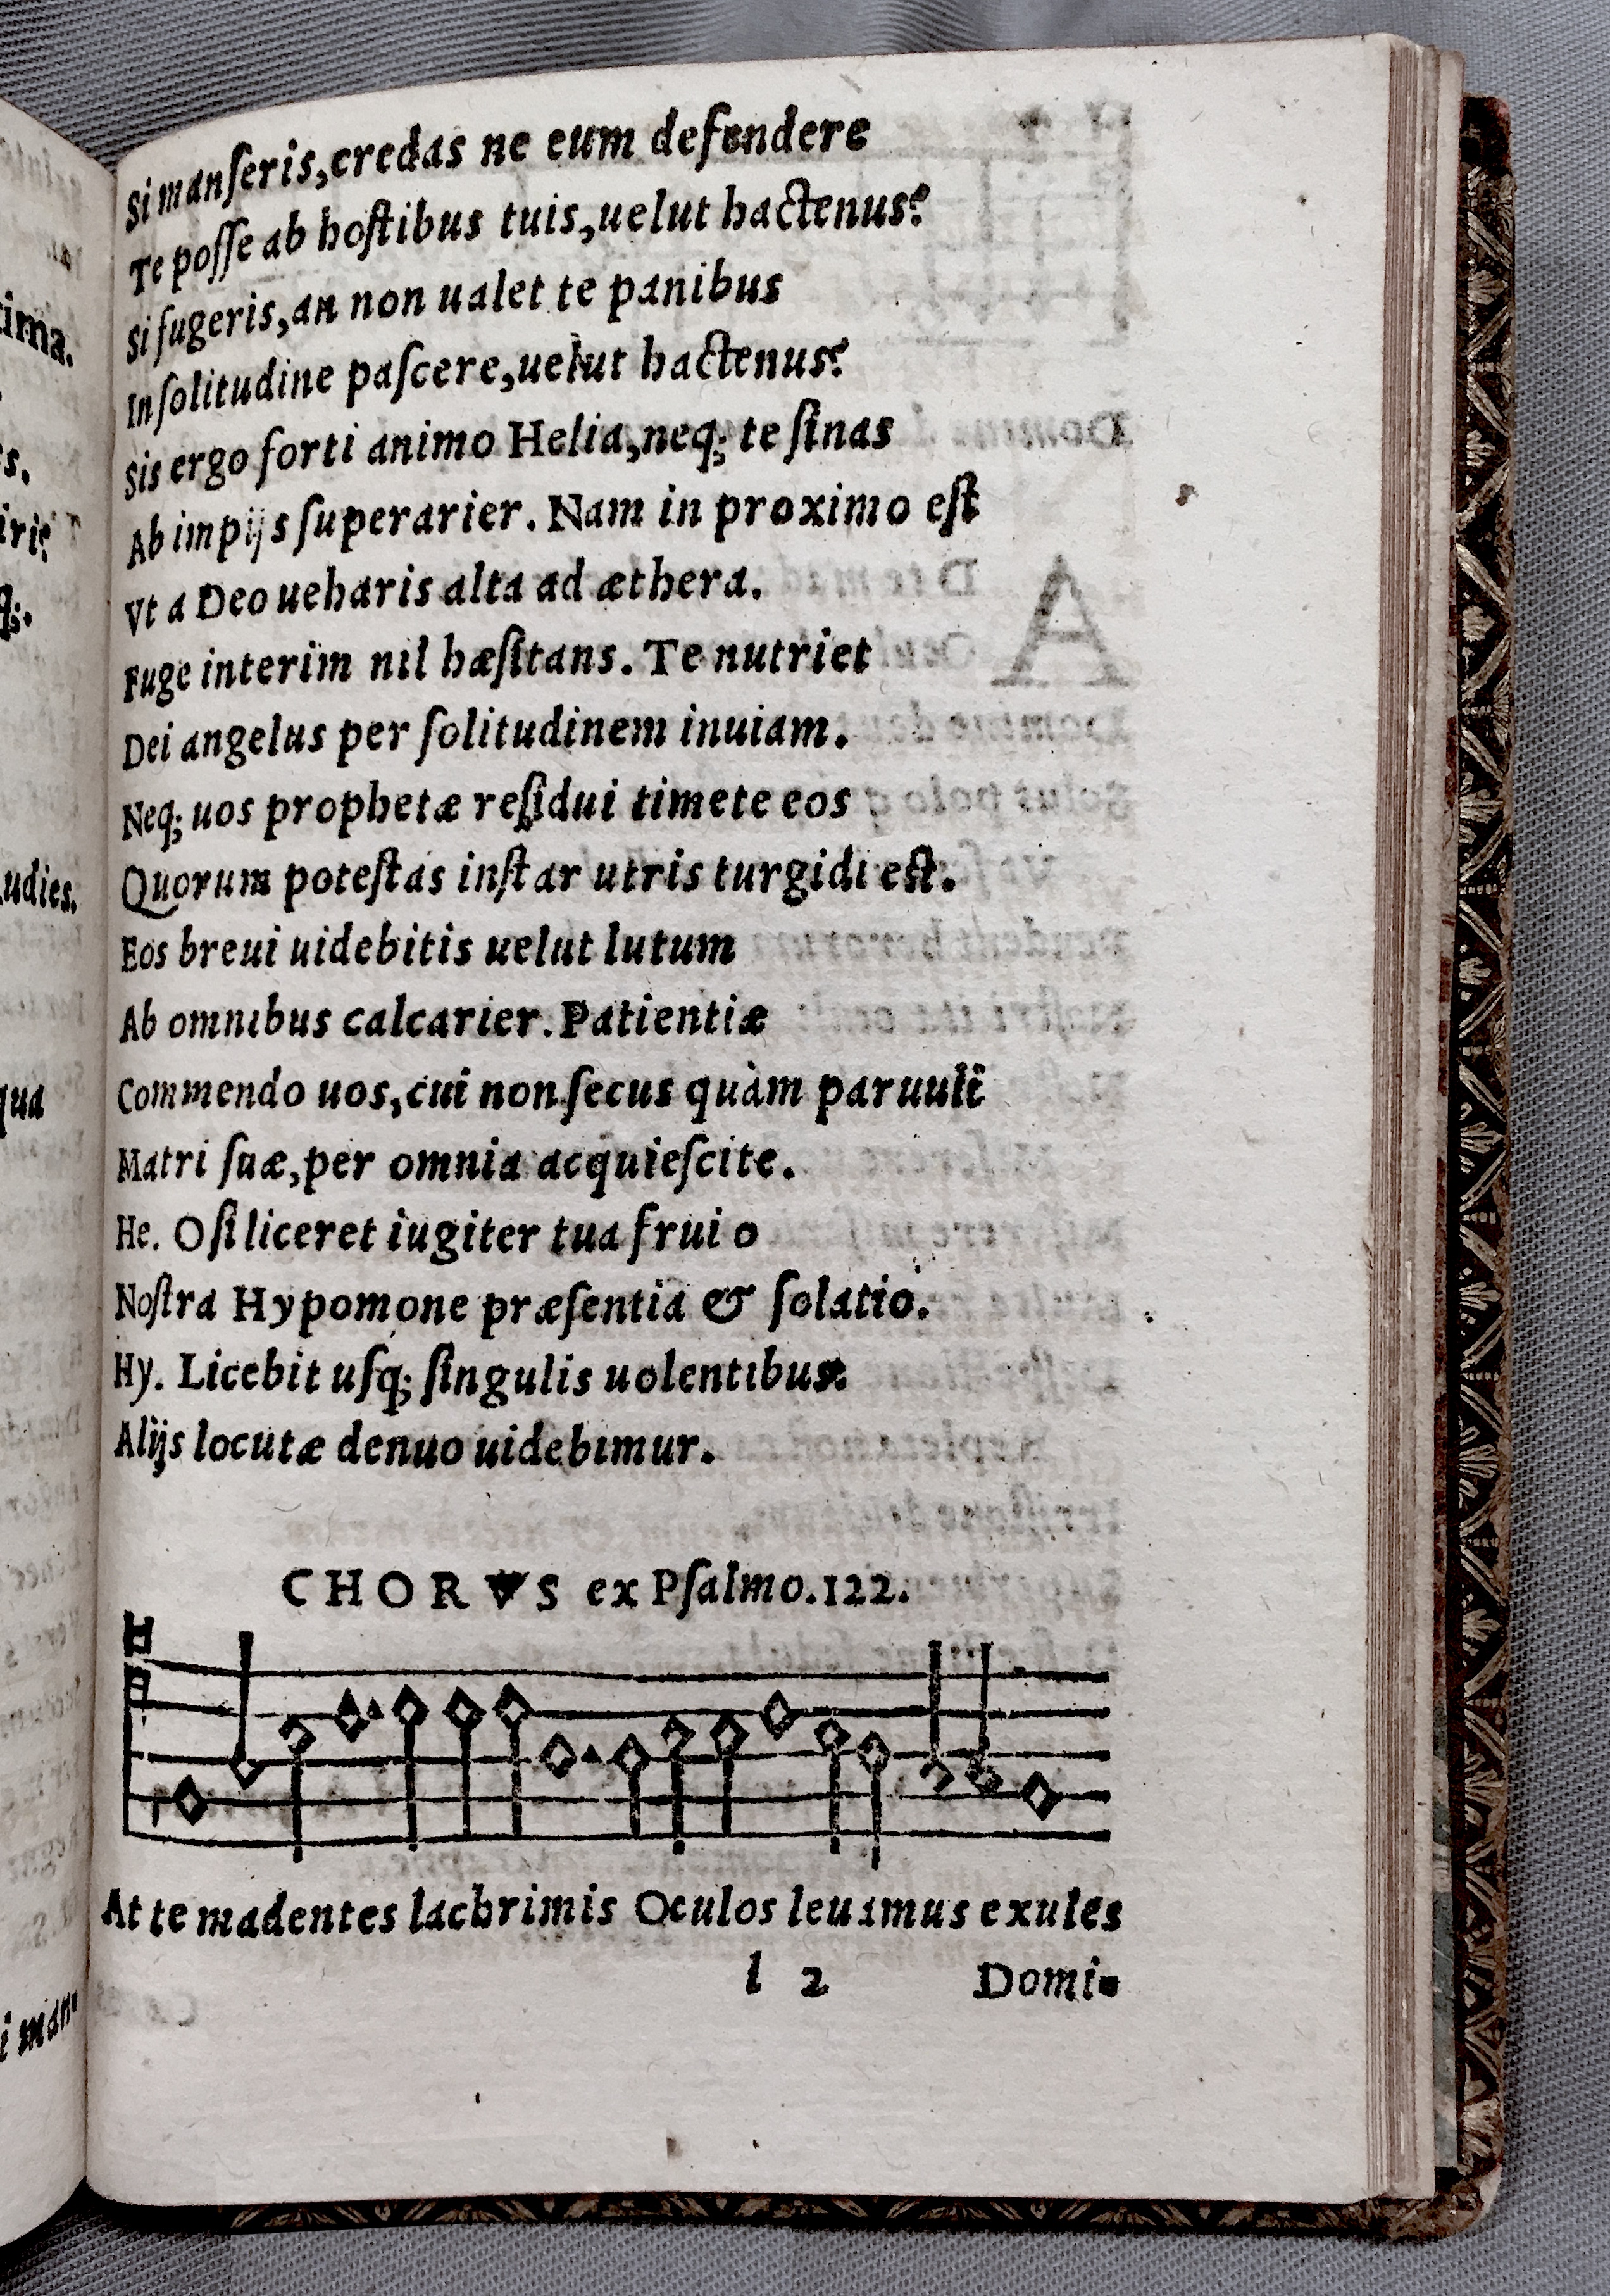 Si manſeris, credas ne eum defendere
Te poſſe ab hoſtibus tuis, uelut hactenus?
Si fugeris, an non ualet te panibus
In ſolitudine paſcere, uelut hactenus?
Sis ergo forti animo Helia, neq; te ſinas
Ab impijs ſuperarier. Nam in proximo eſt
Vt a Deo ueharis alta ad æthera.
Fuge interim nil hæſitans. Te nutriet
Dei angelus per ſolitudinem inuiam.
Neq; uos prophetæ reſidui timete eos
Quorum poteſtas inſtar utris turgidi eſt.
Eos breui uidebitis uelut lutum
Ab omnibus calcarier. Patientiæ
Commendo uos, cui non ſecus quàm paruuli
Matri ſuæ, per omnia acquieſcite.
He. O ſi liceret iugiter tua frui o
Noſtra Hypomone præſentia & ſolatio.
Hy. Licebit uſq; ſingulis uolentibus.
Alijs locutæ denuo uidebimur.
CHORVS ex Pſalmo. 122.
At te madentes lachrimis Oculos leuamus exules
l 2 Domi-
tima.
udies.
qua
i man-